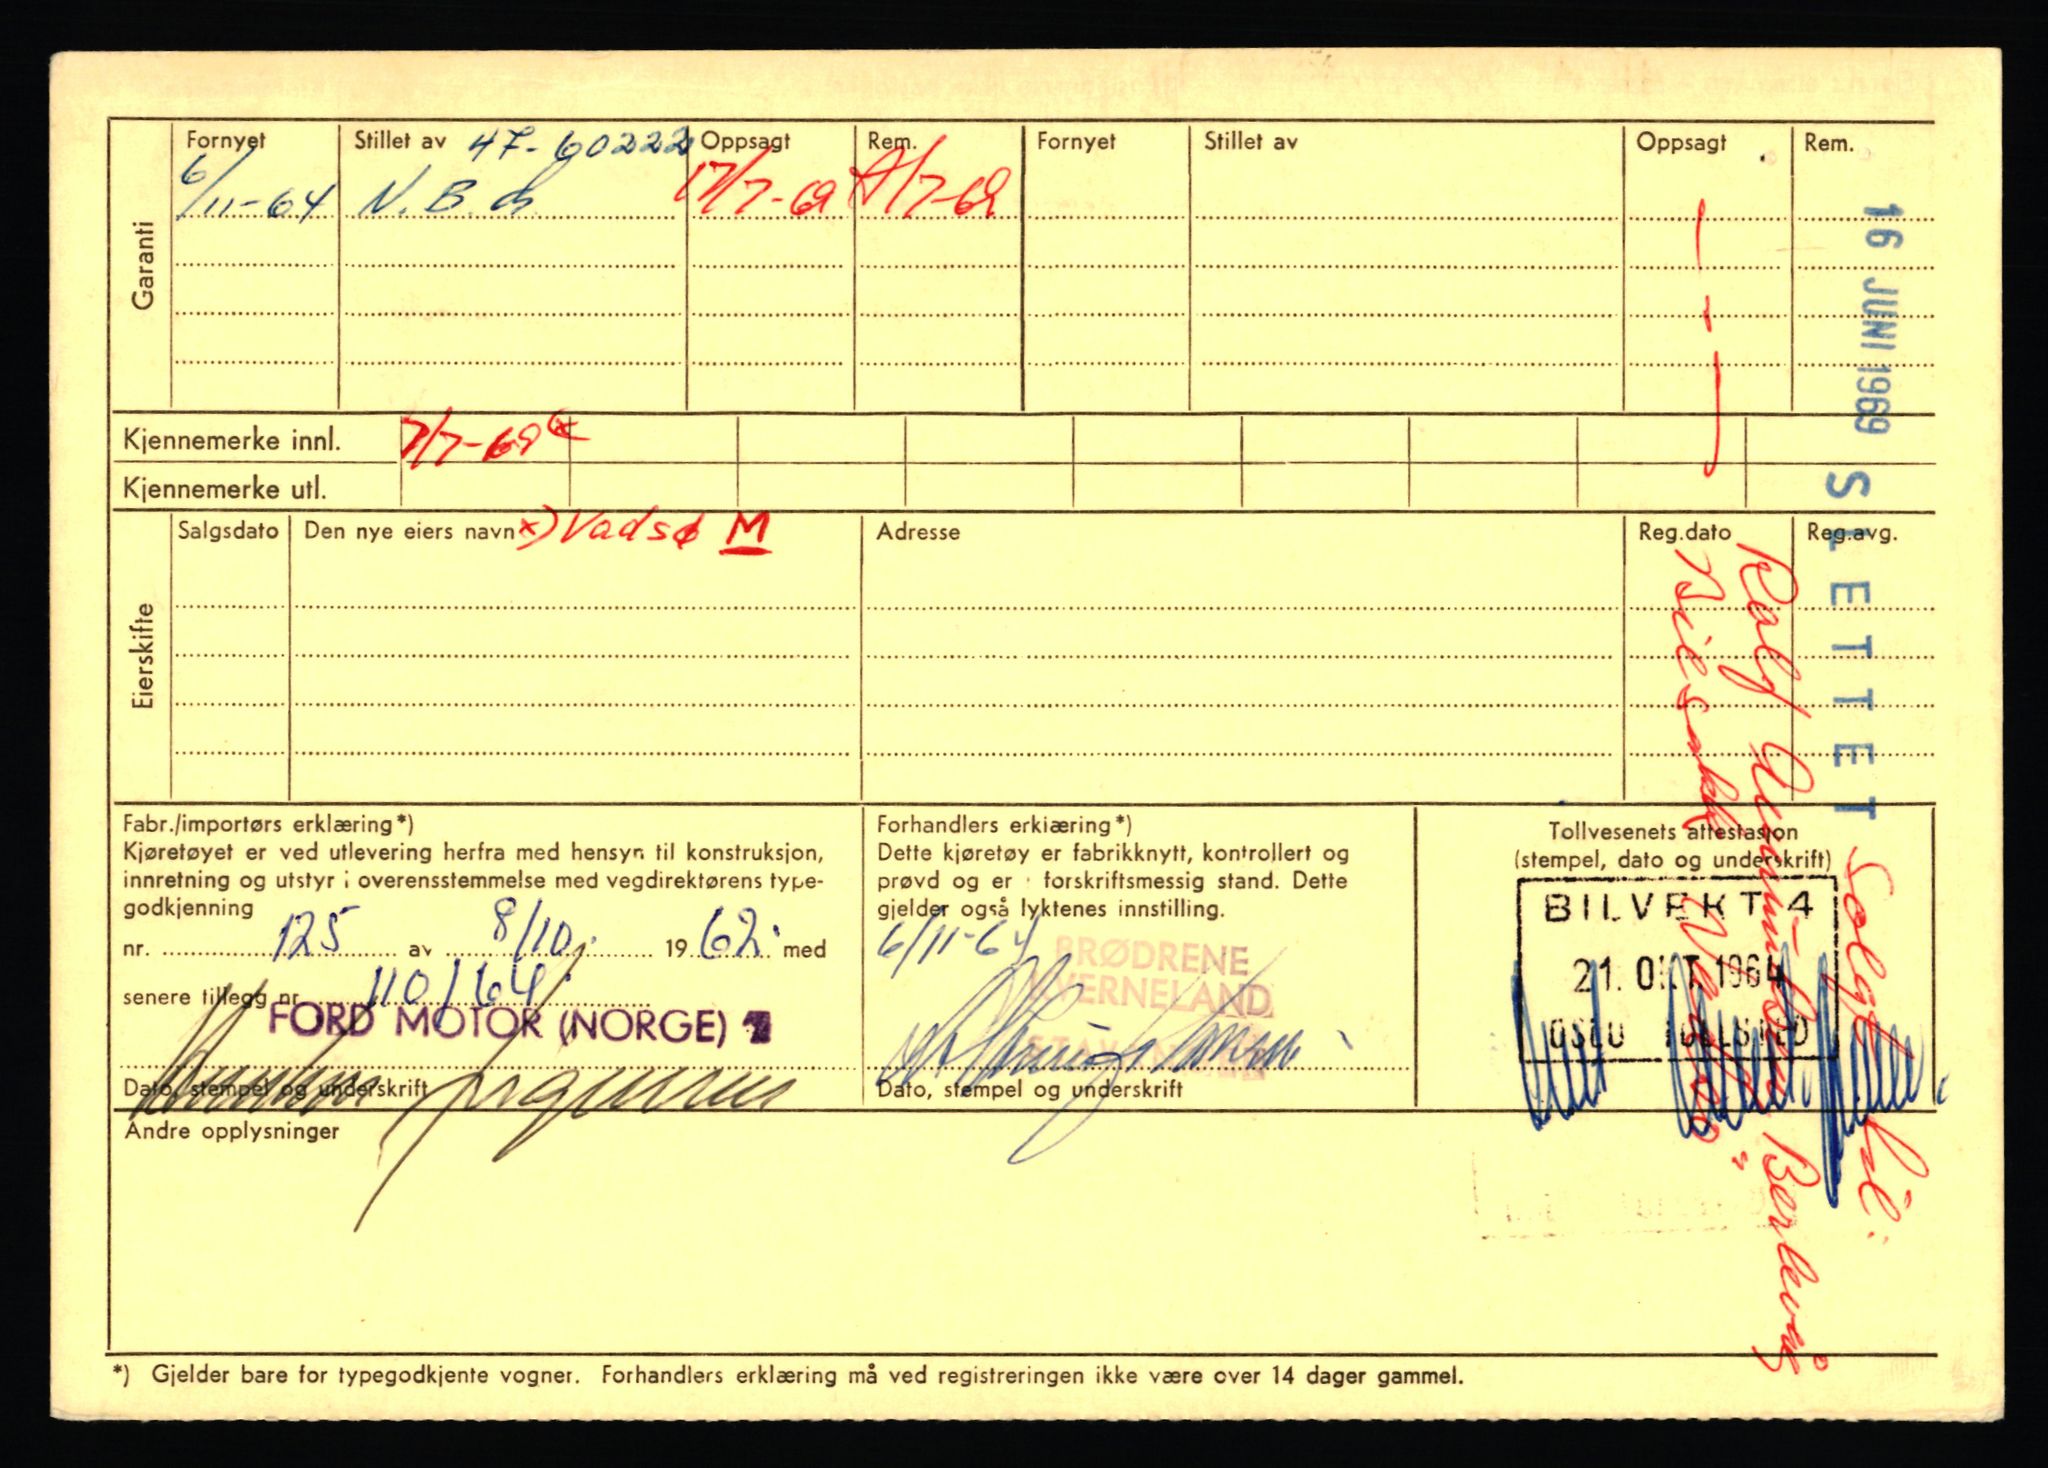 Garanti
Fornyet
Stillet av 47-60222
Oppsagt
Rem.
Fornyet
Stillet av
Oppsagt
Rem.
6/11-64 N.B.
17/7-69
/7-69
Kjennemerke innl. 7/7-69
Kjennemerke utl.
Eierskifte
Salgsdato
Den nye eiers navn x) Vadsø M
Adresse
Reg.dato
Reg.avg.
16 JUNI 1969 SLETTET
Solgt til:
Ralf Berlevåg
Bilsakk
Fabr./importørs erklæring*)
Kjøretøyet er ved utlevering herfra med hensyn til konstruksjon,
innretning og utstyr i overensstemmelse med vegdirektørens type-
godkjenning
nr. 125 av 8/10. 1962. med
senere tillegg nr. 110/64
FORD MOTOR (NORGE)
Dato, stempel og underskrift
Forhandlers erkiæring*)
Dette kjøretøy er fabrikknytt, kontrollert og
prøvd og er forskriftsmessig stand. Dette
gjelder også lyktenes innstilling.
6/11-64
BRØDRENE
KVERNELAND
Dato, stempel og underskrift
Tollvesenets attestasjon
(stempel, dato og underskrift)
BILVEKT 4
21. OKT 1964
OSLO TOLLSTED
Andre opplysninger
*) Gjelder bare for typegodkjente vogner. Forhandlers erklæring må ved registreringen ikke være over 14 dager gammel.